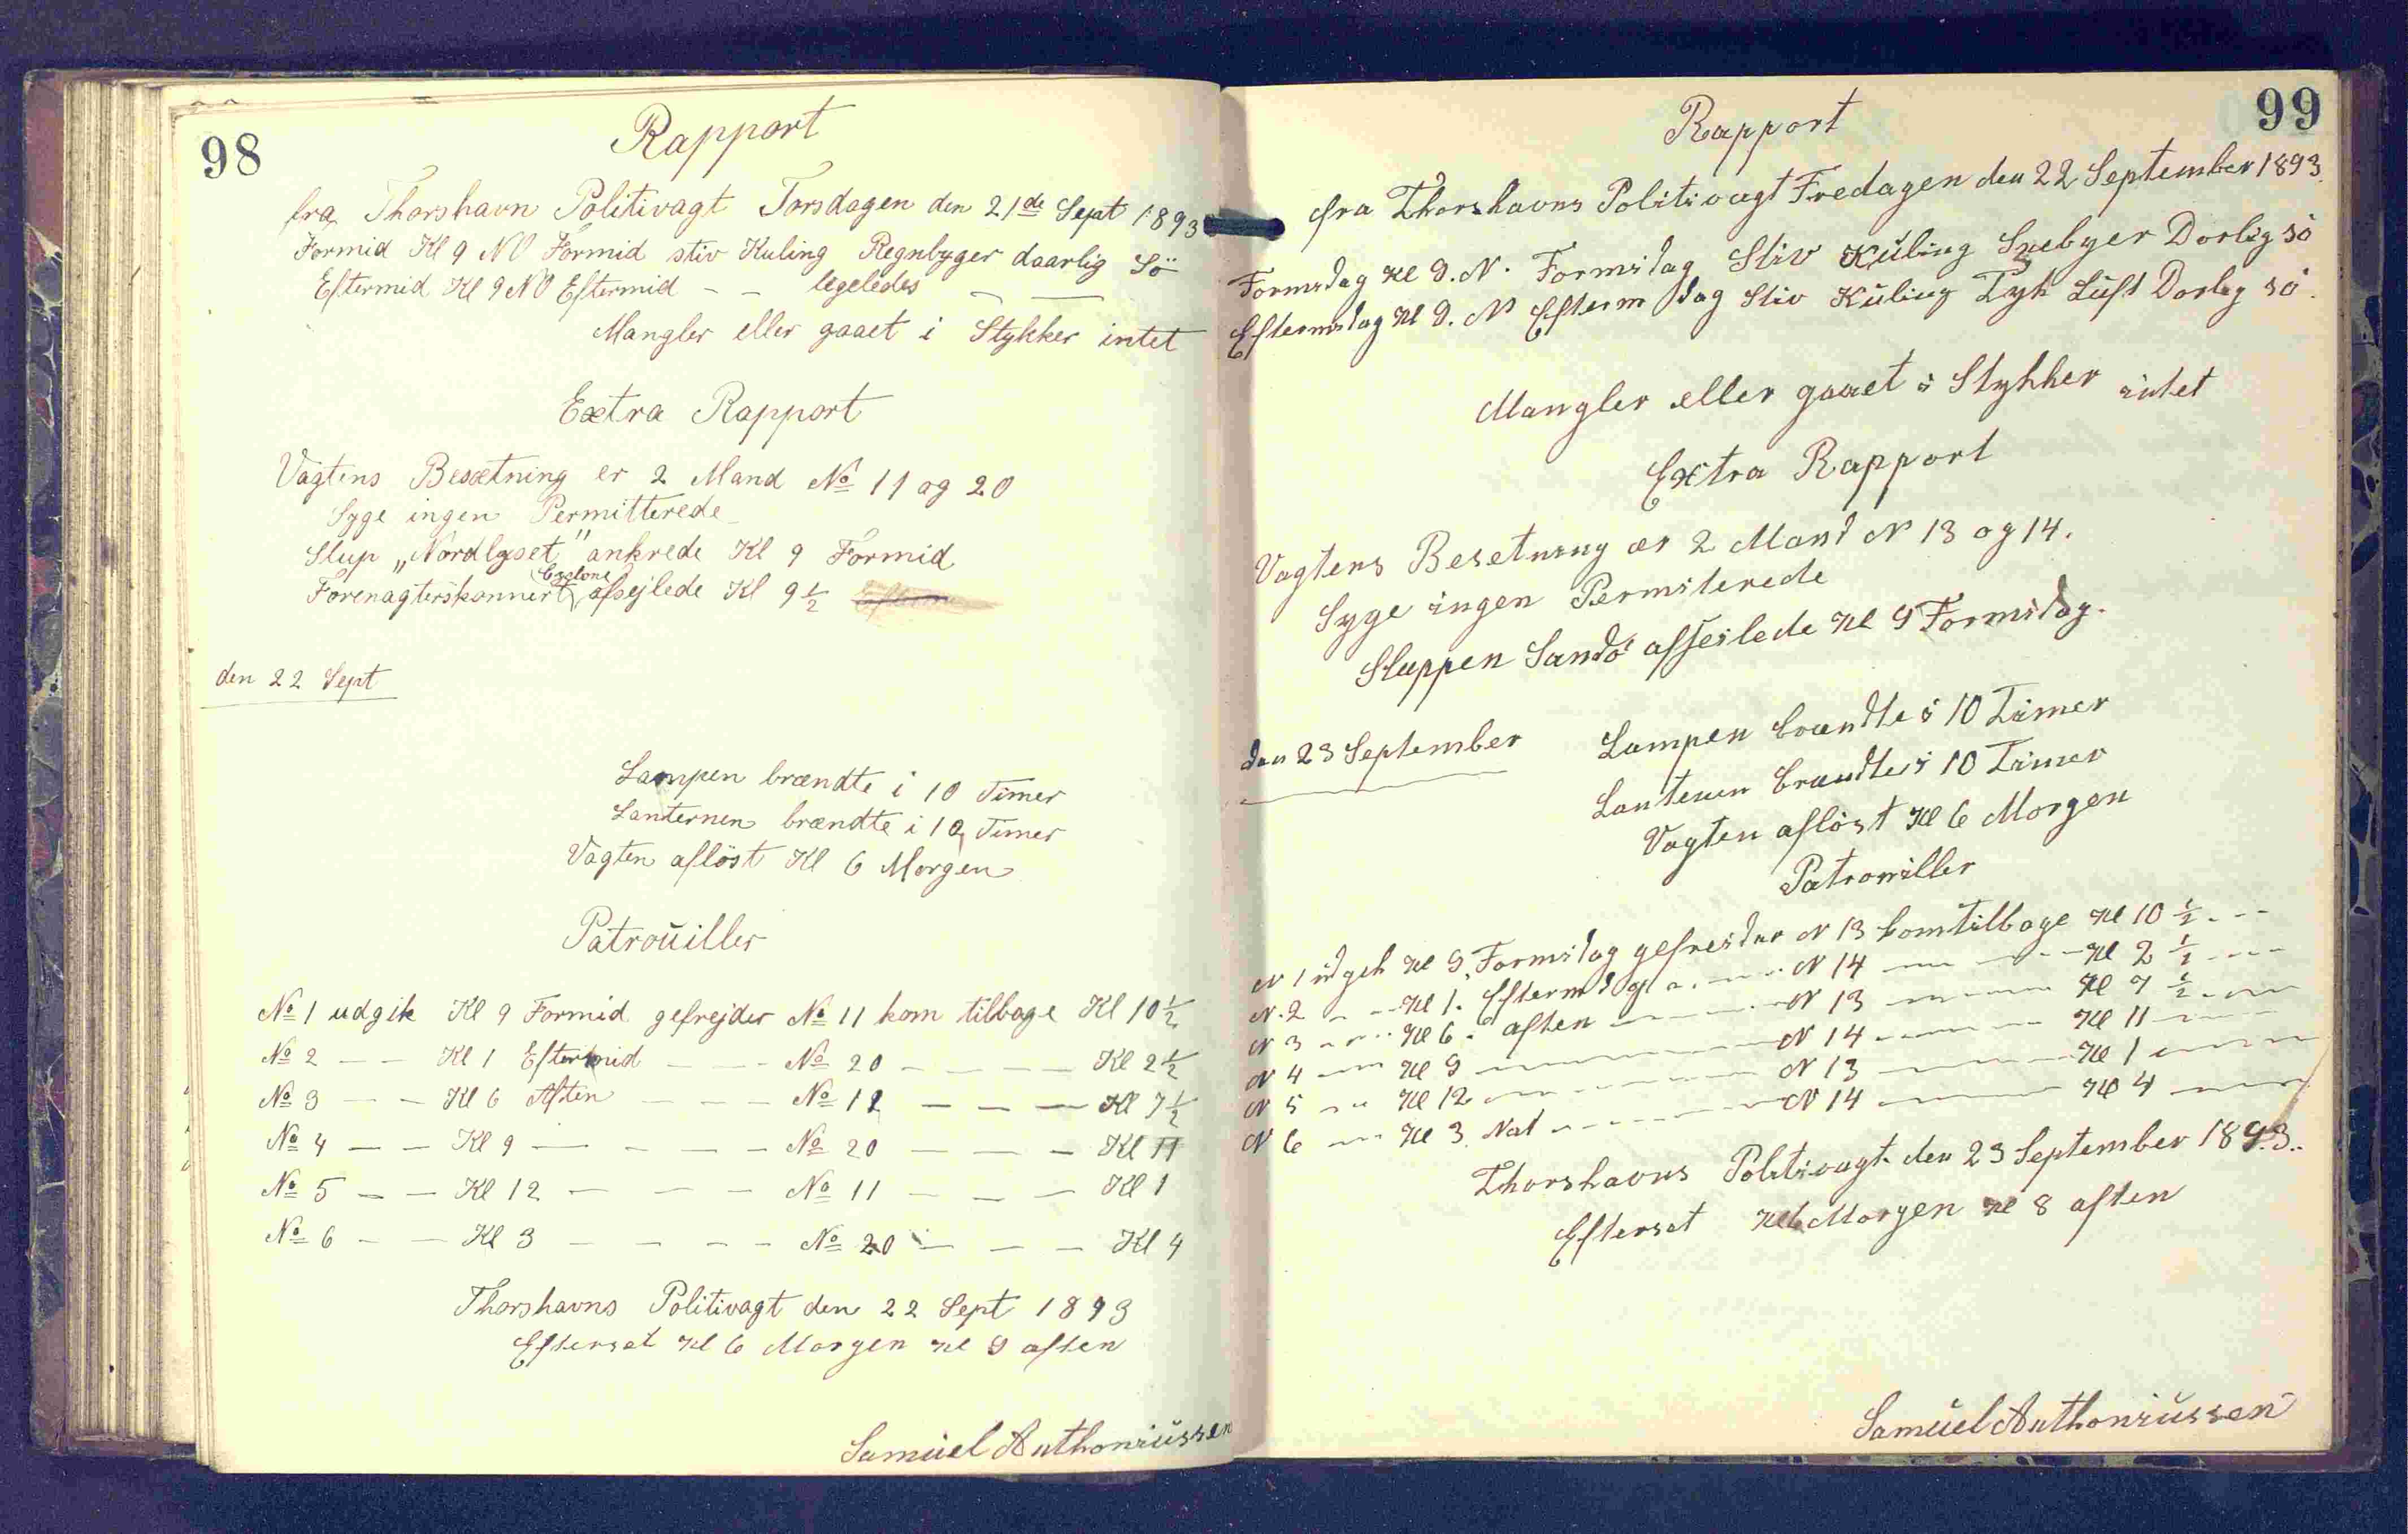 98
Rapport
fra Thorshavn Politivagt Torsdagen den 21de Sept 1893
Formid Kl 9 NO Formid stiv Kuling Regnbyger daarlig Sö
Eftermid Kl 9 NO Eftermid - - legeledes — —
Mangler eller gaaet i Stykker intet
Extra Rapport
Vagtens Besætning er 2 Mand No 11 og 20
Syge ingen Permitterede
Slup „Nordlyset" ankrede Kl 9 Formid
Cyclone
Forenagterskonnert afsejlede Kl 9 1/2
den 22 Sept
Lampen brændte i 10 Timer
Lanternen brændte i 10 Timer
Vagten aflöst Kl 6 Morgen
Patrouiller
No 1 udgik Kl 9 Formid gefrejder No 11 kom tilbage Kl 10 1/2
No 2 — — Kl 1 Eftermid — — - No 20 — — — — Kl 2 1/2
No 3 — — Kl 6 Aften — — — No 11 — — — Kl 7 1/2
No 4 — — Kl 9 — — — — No 20 — — — Kl 11
No 5 — — Kl 12 — — — No 11 — — — Kl 1
No 6 — — Kl 3 — — — — No 20 — — — Kl 4
Thorshavns Politivagt den 22 Sept 1893
Efterset Kl 6 Morgen Kl 9 aften
Samuel Anthoniussen
99
Rapport
fra Thorshavns Politivagt Fredagen den 22 September 1893.
Formidag Kl 9. N. Formidag Stiv Kuling Snebyer Dorlig sö
Eftermidag Kl 9. N Efterm dag Stiv Kuling Tyk Luft Dorlig sö.
Mangler eller gaaet i Stykker intet
Extra Rapport
Vagtens Besetning er 2 Mand N 13 og 14.
Syge ingen Permiterede
Sluppen Sandö afseilede Kl 9 Formidag.
den 23 September
Lampen brændte i 10 Timer
Lanteren brændte i 10 Timer
Vagten aflöst Kl 6 Morgen
Patrouiller
N 1 udgek Kl 9. Formidag gefreidur N 13 kom tilbage Kl 10 1/2 - - -
N. 2 - - - Kl 1. Eftermidag - - - N 14 — - - - Kl 2 1/2 - - -
N 3 - - - Kl 6. aften — — N 13 — — Kl 7 1/2 - - -
N 4 — Kl 9 — — — N 14 — — Kl 11 — —
N 5 — Kl 12 — — — N 13 — — Kl 1 — —
N 6 — Kl 3. Nat - - - - N 14 — — Kl 4 — —
Thorshavns Politivagt den 23 September 1893..
Efterset Kl 6 Morgen Kl 8 aften
Samuel Anthoniussen